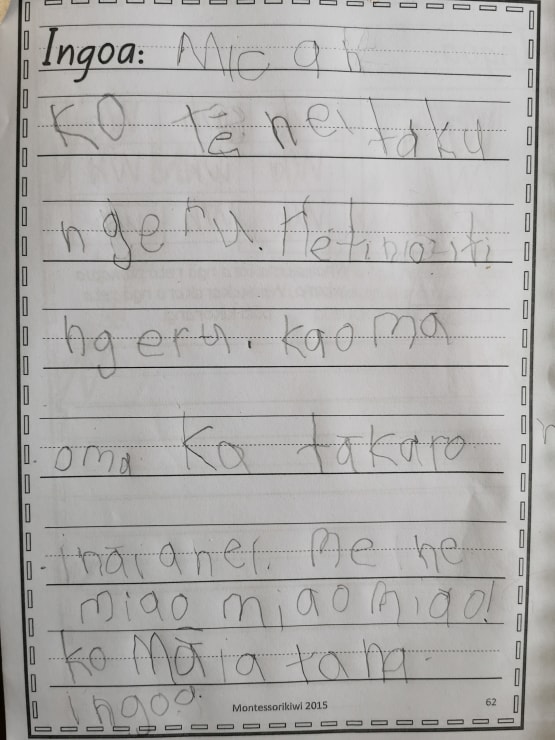 Ingoa: Micah
KO tēnei taku
ngeru. He tino iti
ngeru. Kaoma
oma Ka tākaro
ināianei. Me he
miao miao miao!
ko Māia tana
ingoa.
Montessorikiwi 2015 62